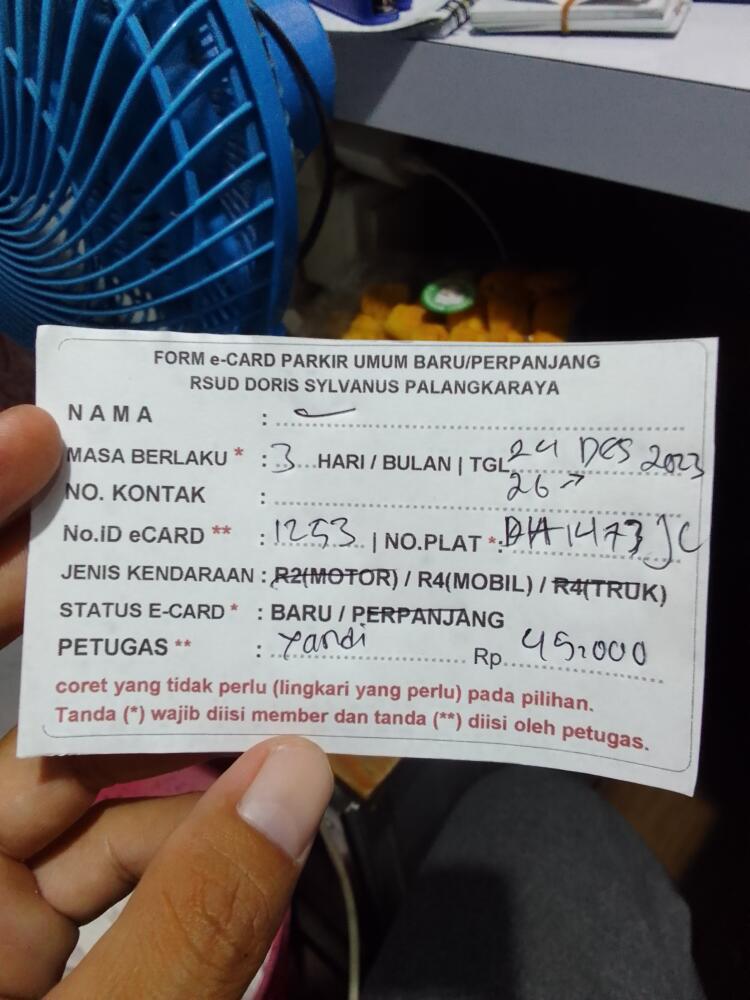 FORM e-CARD PARKIR UMUM BARU/PERPANJANG
RSUD DORIS SYLVANUS PALANGKARAYA
NAMA :
MASA BERLAKU * : 3 HARI / BULAN | TGL 24 DES 2023
26 →
NO. KONTAK :
No.iD eCARD ** : 1253 | NO.PLAT *: DA 1473 JC
JENIS KENDARAAN : R2(MOTOR) / R4(MOBIL) / R4(TRUK)
STATUS E-CARD * : BARU / PERPANJANG
PETUGAS ** : Yandi Rp. 45.000
coret yang tidak perlu (lingkari yang perlu) pada pilihan.
Tanda (*) wajib diisi member dan tanda (**) diisi oleh petugas.